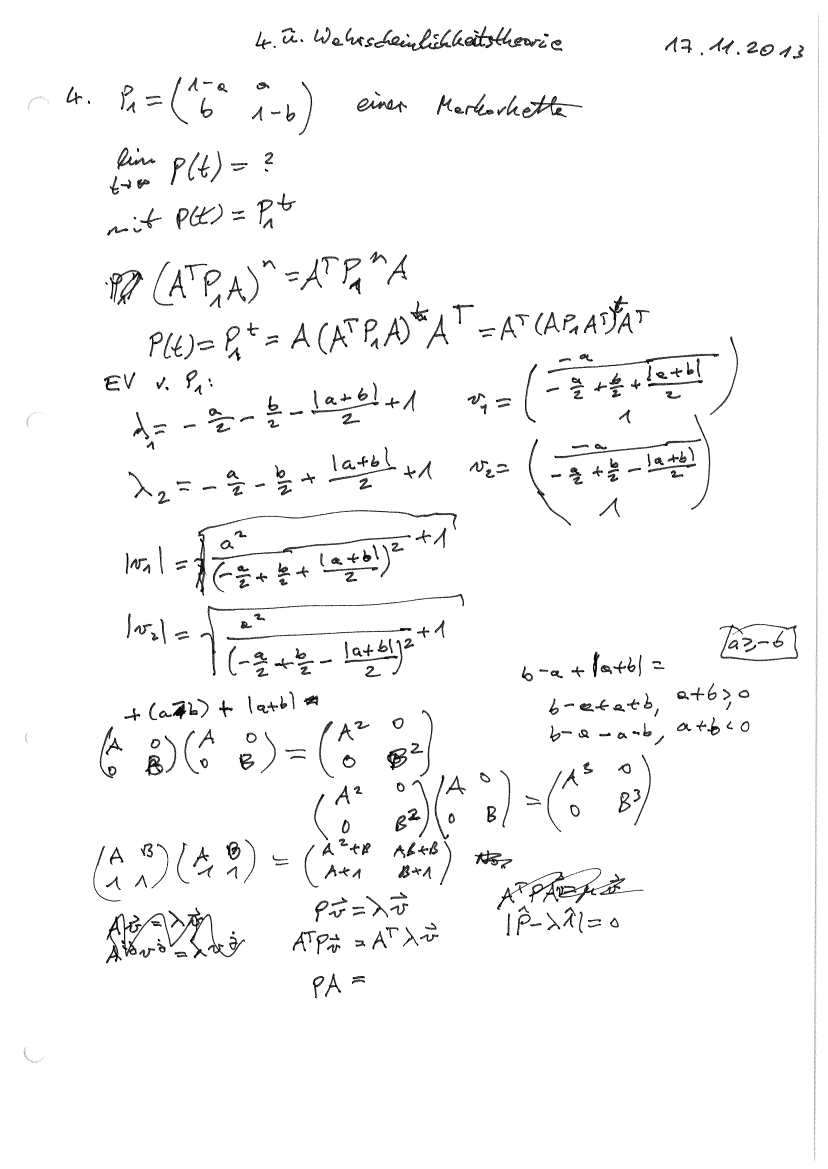 4. Ü. Wahrscheinlichkeitstheorie 17.11.2013
4. P₁ = (1-a a; b 1-b) einer Markovkette
lim t→∞ P(t) = ?
mit P(t) = P₁^t
(AᵀP₁A)ⁿ = AᵀP₁ⁿA
P(t) = P₁^t = A(AᵀP₁A)^t Aᵀ = Aᵀ(AP₁Aᵀ)^t Aᵀ
EV v. P₁:
λ₁ = -a/2 - b/2 - |a+b|/2 + 1 v₁ = (-a/(-a/2 + b/2 + |a+b|/2); 1)
λ₂ = -a/2 - b/2 + |a+b|/2 + 1 v₂ = (-a/(-a/2 + b/2 - |a+b|/2); 1)
|v₁| = √(a²/(-a/2 + b/2 + |a+b|/2)² + 1)
|v₂| = √(a²/(-a/2 + b/2 - |a+b|/2)² + 1)
a ≥ -b
b-a + |a+b| =
b-a+a+b, a+b ≥ 0
b-a-a-b, a+b < 0
(A 0; 0 B)(A 0; 0 B) = (A² 0; 0 B²)
(A² 0; 0 B²)(A 0; 0 B) = (A³ 0; 0 B³)
(A B; 1 1)(A B; 1 1) = (A²+B AB+B; A+1 B+1)
Pv⃗ = λv⃗
|P̂ - λ1̂| = 0
AᵀPv⃗ = Aᵀλv⃗
PA =